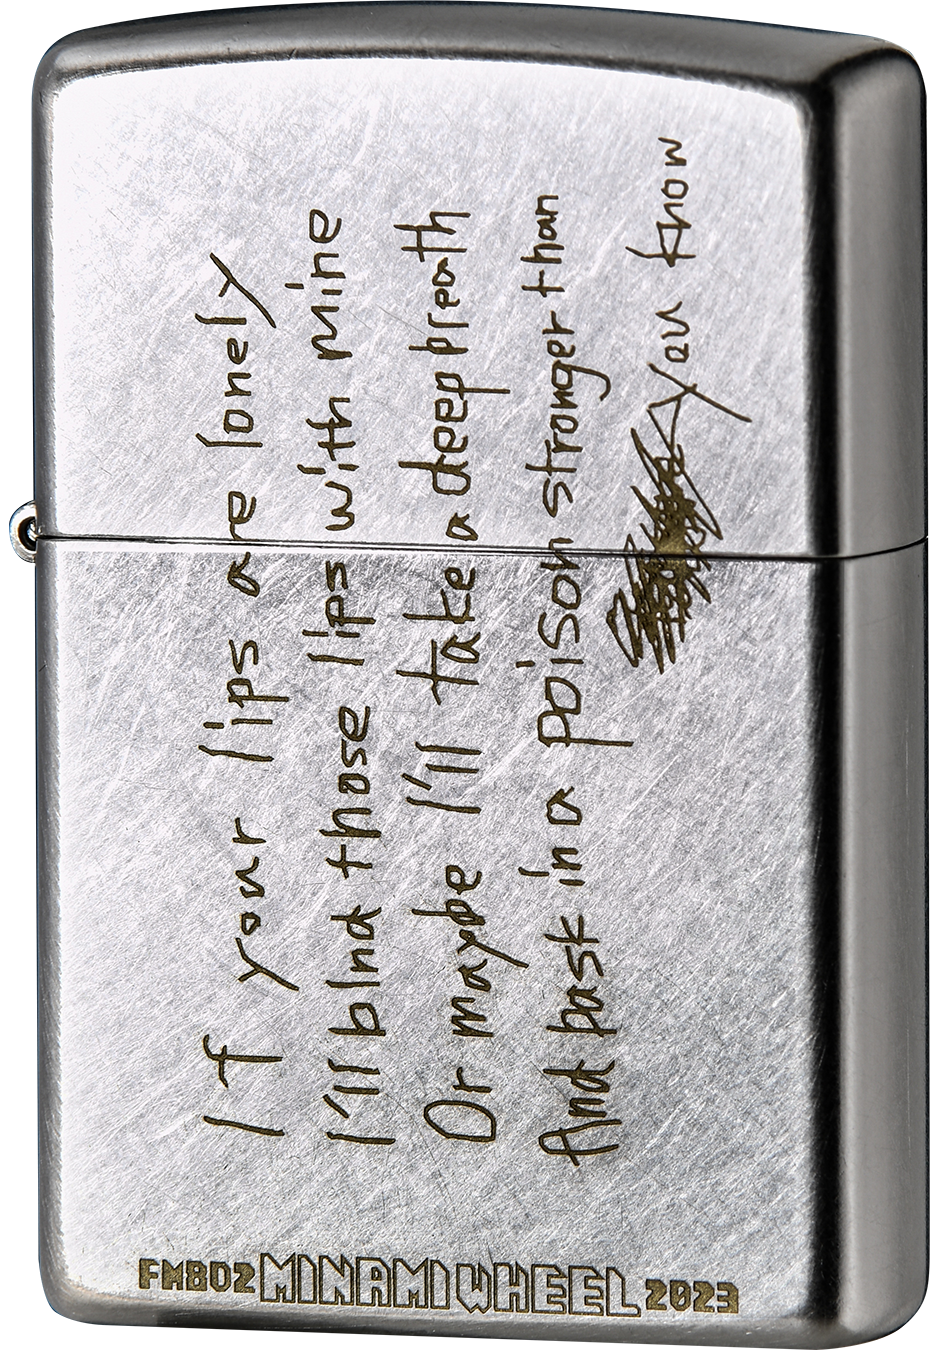 If your lips are lonely
I'll bind those lips with mine
Or maybe I'll take a deep breath
And bask in a poison stronger than
you know
FM802 MINAMI WHEEL 2023